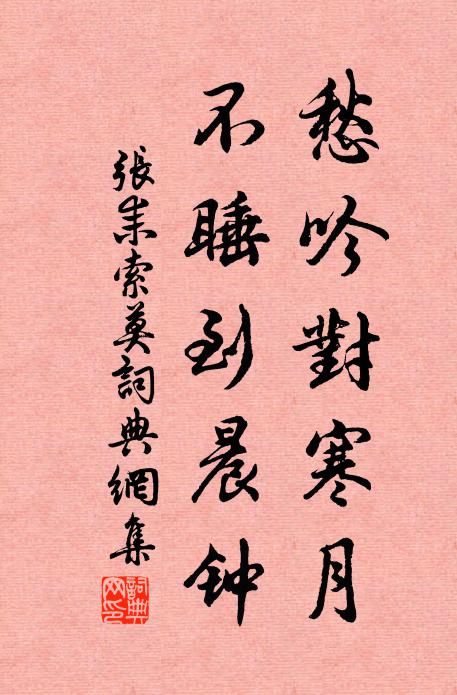 愁吟對寒月
不睡到晨钟
張耒索莫詞典網集
詞典网印